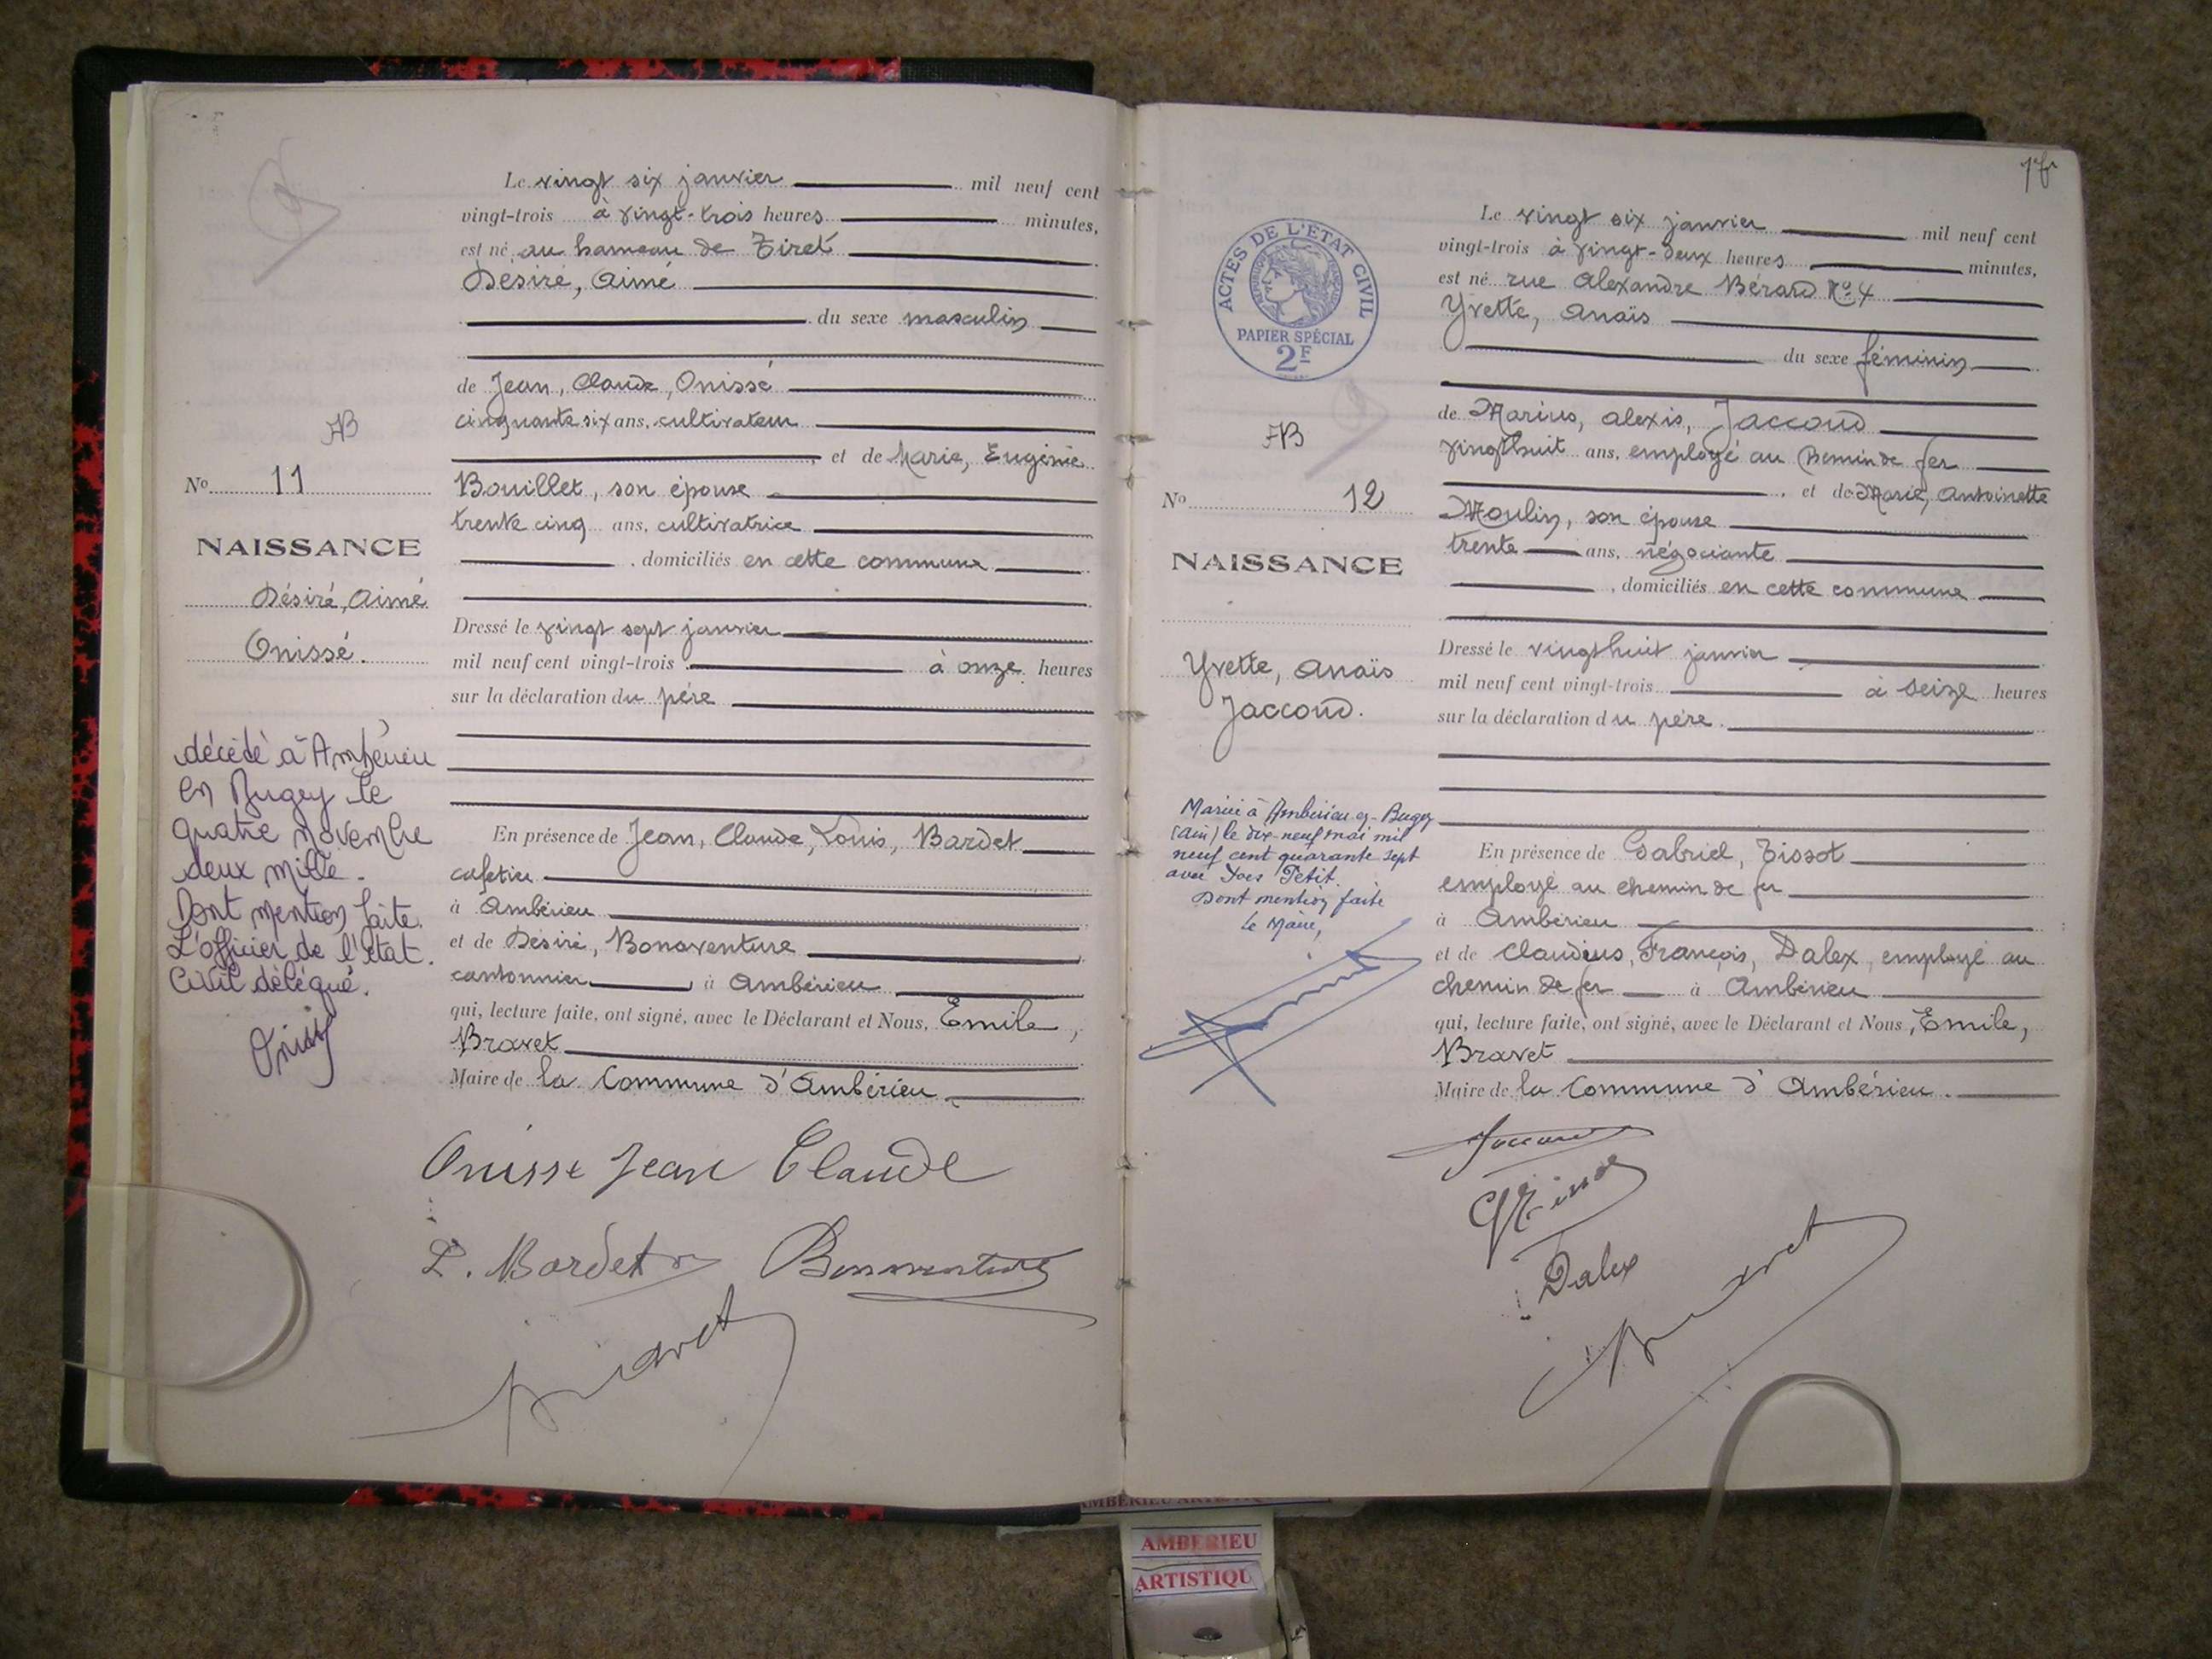 Le vingt six janvier mil neuf cent
vingt-trois à vingt-trois heures minutes,
est né au hameau de Tiret
Désiré, Aimé
du sexe masculin
de Jean, Claude, Onissé
cinquante six ans, cultivateur
et de Marie, Eugénie
Bouillet, son épouse
trente cinq ans, cultivatrice
, domiciliés en cette commune
Dressé le vingt sept janvier
mil neuf cent vingt-trois à onze heures
sur la déclaration du père
En présence de Jean, Claude, Louis, Bardet
cafetier
à Ambérieu
et de Désiré, Bonaventure
cantonnier à Ambérieu
qui, lecture faite, ont signé, avec le Déclarant et Nous, Emile,
Bravet
Maire de la Commune d'Ambérieu
Onisse Jean Claude
L. Bardet Bonaventure
Bravet
AB
No 11
NAISSANCE
Désiré, Aimé
Onissé.
décédé à Ambérieu
en Bugey le
quatre novembre
deux mille.
Dont mention faite.
L'officier de l'état.
Civil délégué.
ACTES DE L'ÉTAT CIVIL
PAPIER SPÉCIAL
2F
AB
No 12
NAISSANCE
Yvette, Anaïs
Jaccoud.
Mariée à Ambérieu-en-Bugey
(Ain) le dix-neuf mai mil
neuf cent quarante sept
avec Yves Petit.
Dont mention faite
Le Maire,
Le vingt six janvier mil neuf cent
vingt-trois à vingt-deux heures minutes,
est né rue Alexandre Bérard No 4
Yvette, Anaïs
du sexe féminin
de Marius, Alexis, Jaccoud
vingt huit ans, employé au chemin de fer
, et de Marie, Antoinette
Moulin, son épouse
trente ans, négociante
, domiciliés en cette commune
Dressé le vingt huit janvier
mil neuf cent vingt-trois à seize heures
sur la déclaration du père.
En présence de Gabriel, Tissot
employé au chemin de fer
à Ambérieu
et de Claudius, François, Dalex, employé au
chemin de fer à Ambérieu
qui, lecture faite, ont signé, avec le Déclarant et Nous, Emile,
Bravet
Maire de la Commune d'Ambérieu.
Jaccoud
Dalex
Bravet
AMBERIEU
ARTISTIQU